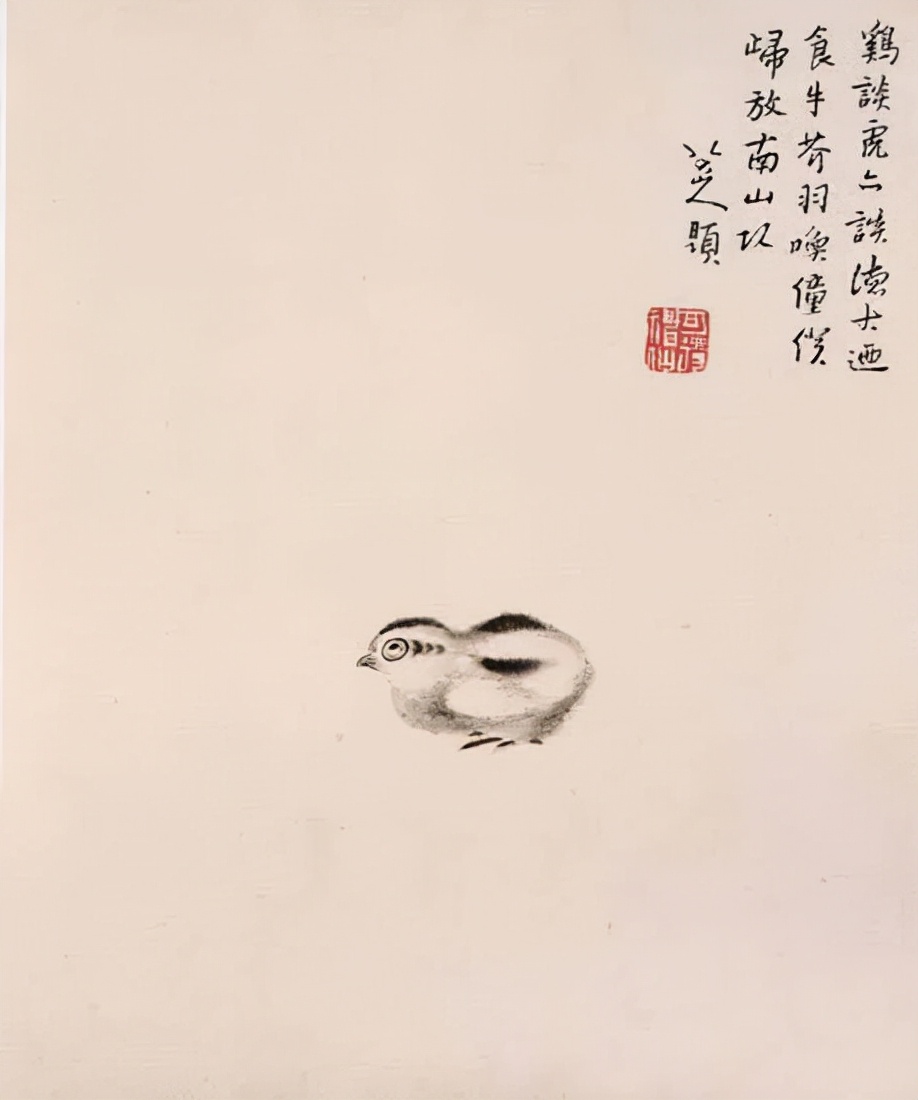 鷄談虎亦談德大迺
食牛芥羽喚僮僕
歸放南山
八大山人題
可得神仙